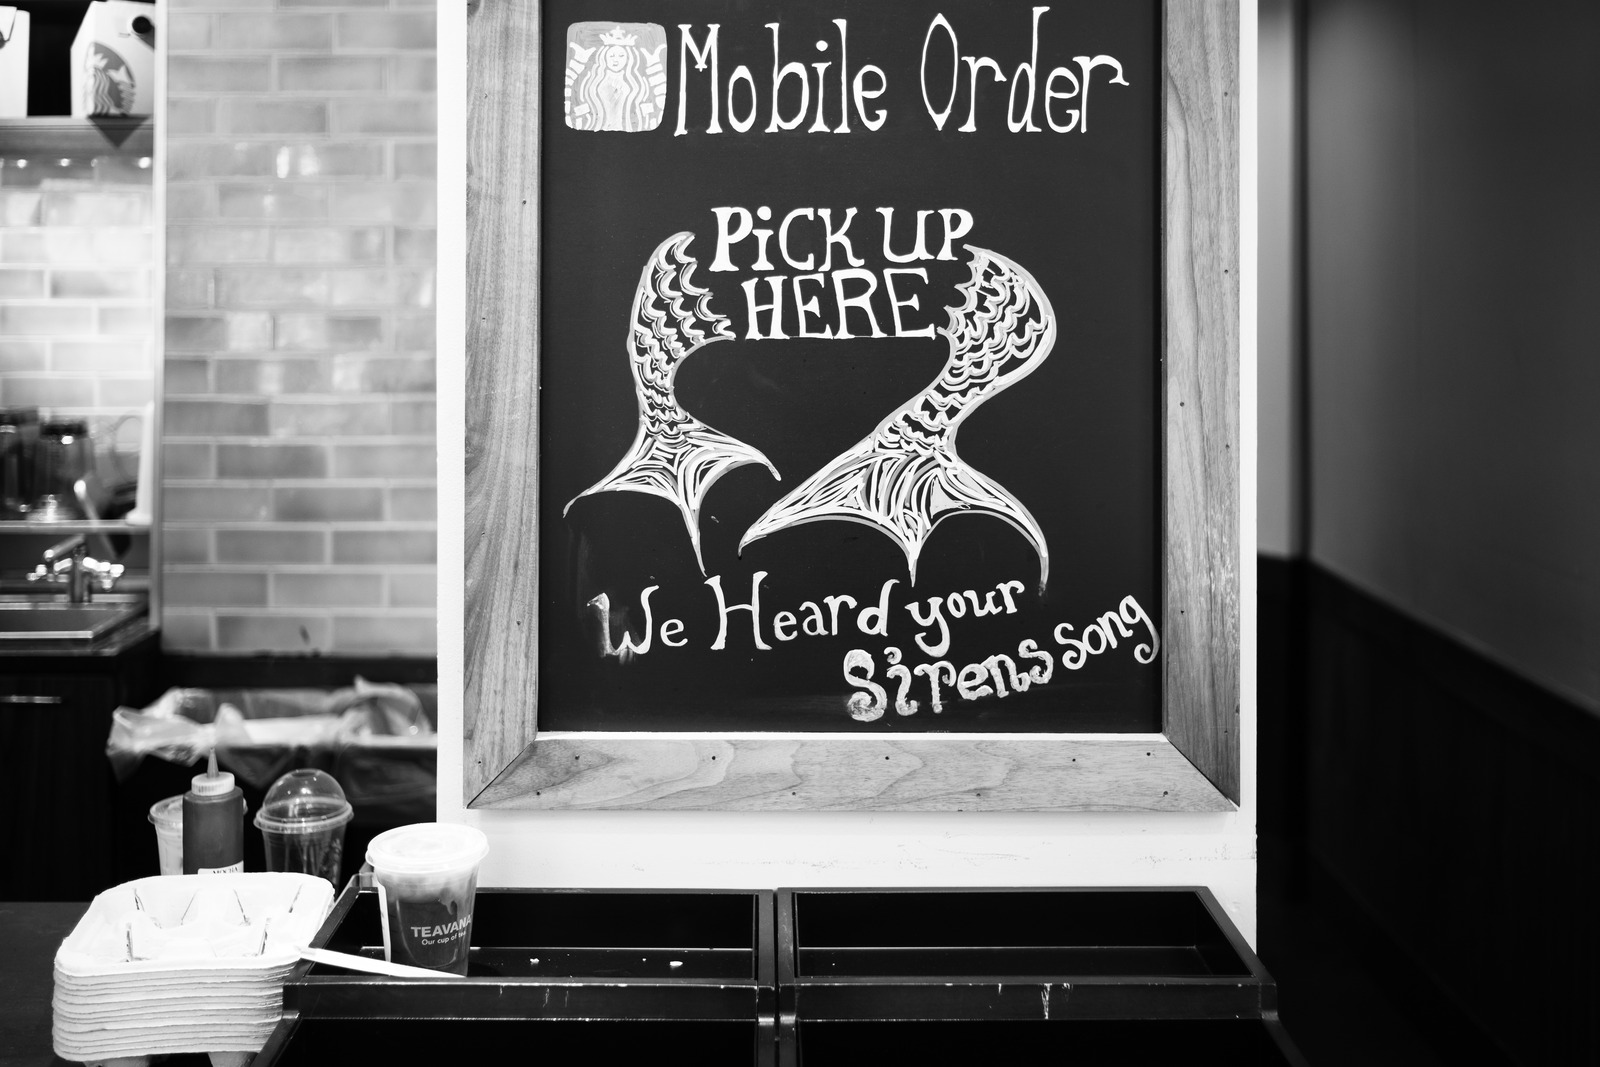 Mobile Order
PiCK UP
HERE
We Heard your
Sirens song
MOCHA
TEAVANA
Our cup of tea